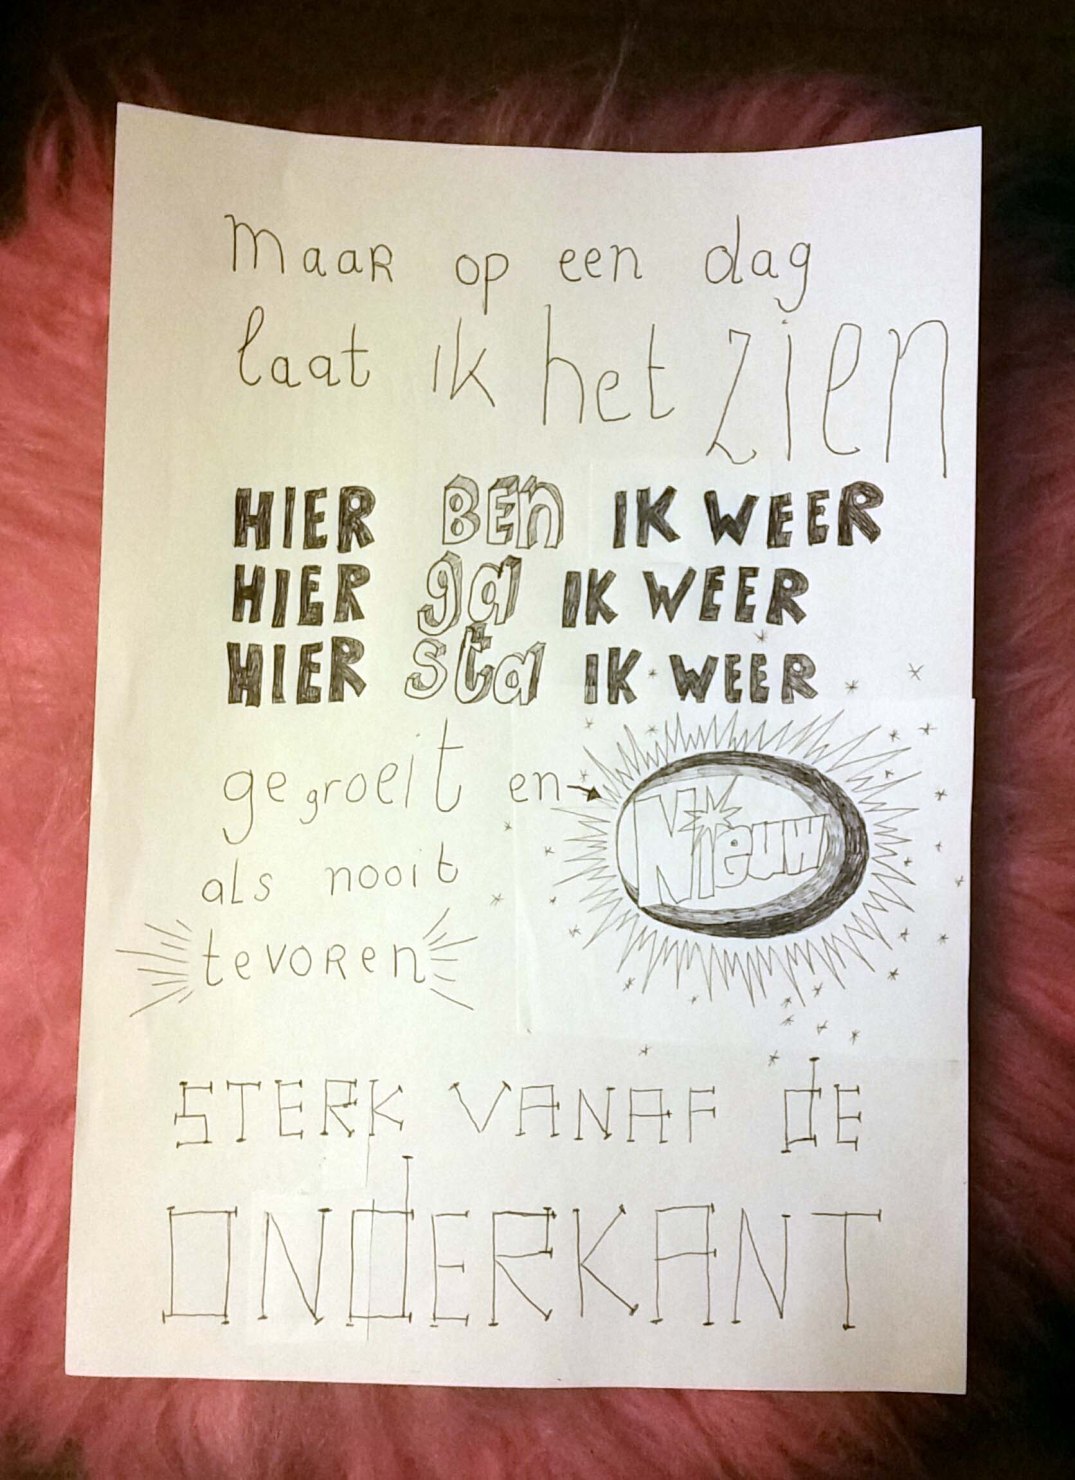 maaR op een dag
laat ik het zien
HIER BEn IK WEER
HIER ga IK WEER
HIER sta IK WEER
gegroeit en Nieuw
aLs nooit
tevoRen
STERK VANAF dE
ONdERKANT